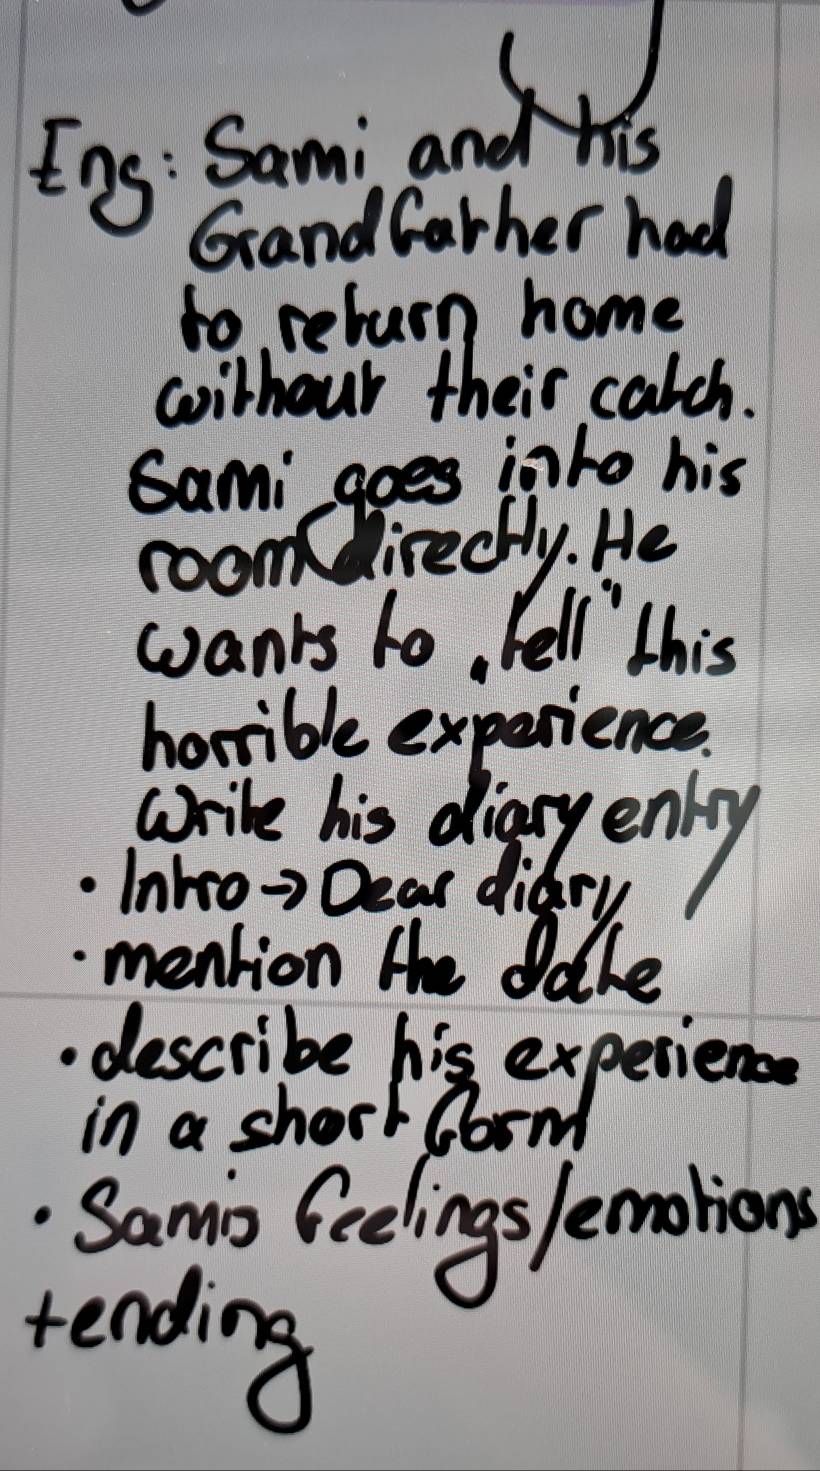 Eng: Sami and his
Grandfather had
to return home
without their catch.
Sami goes into his
room directly. He
wants to „tell" this
horrible experience.
Write his diary entry
• Intro → Dear diary
• mention the date
• describe his experience
in a short form
• Sami's feelings/emotions
+ending